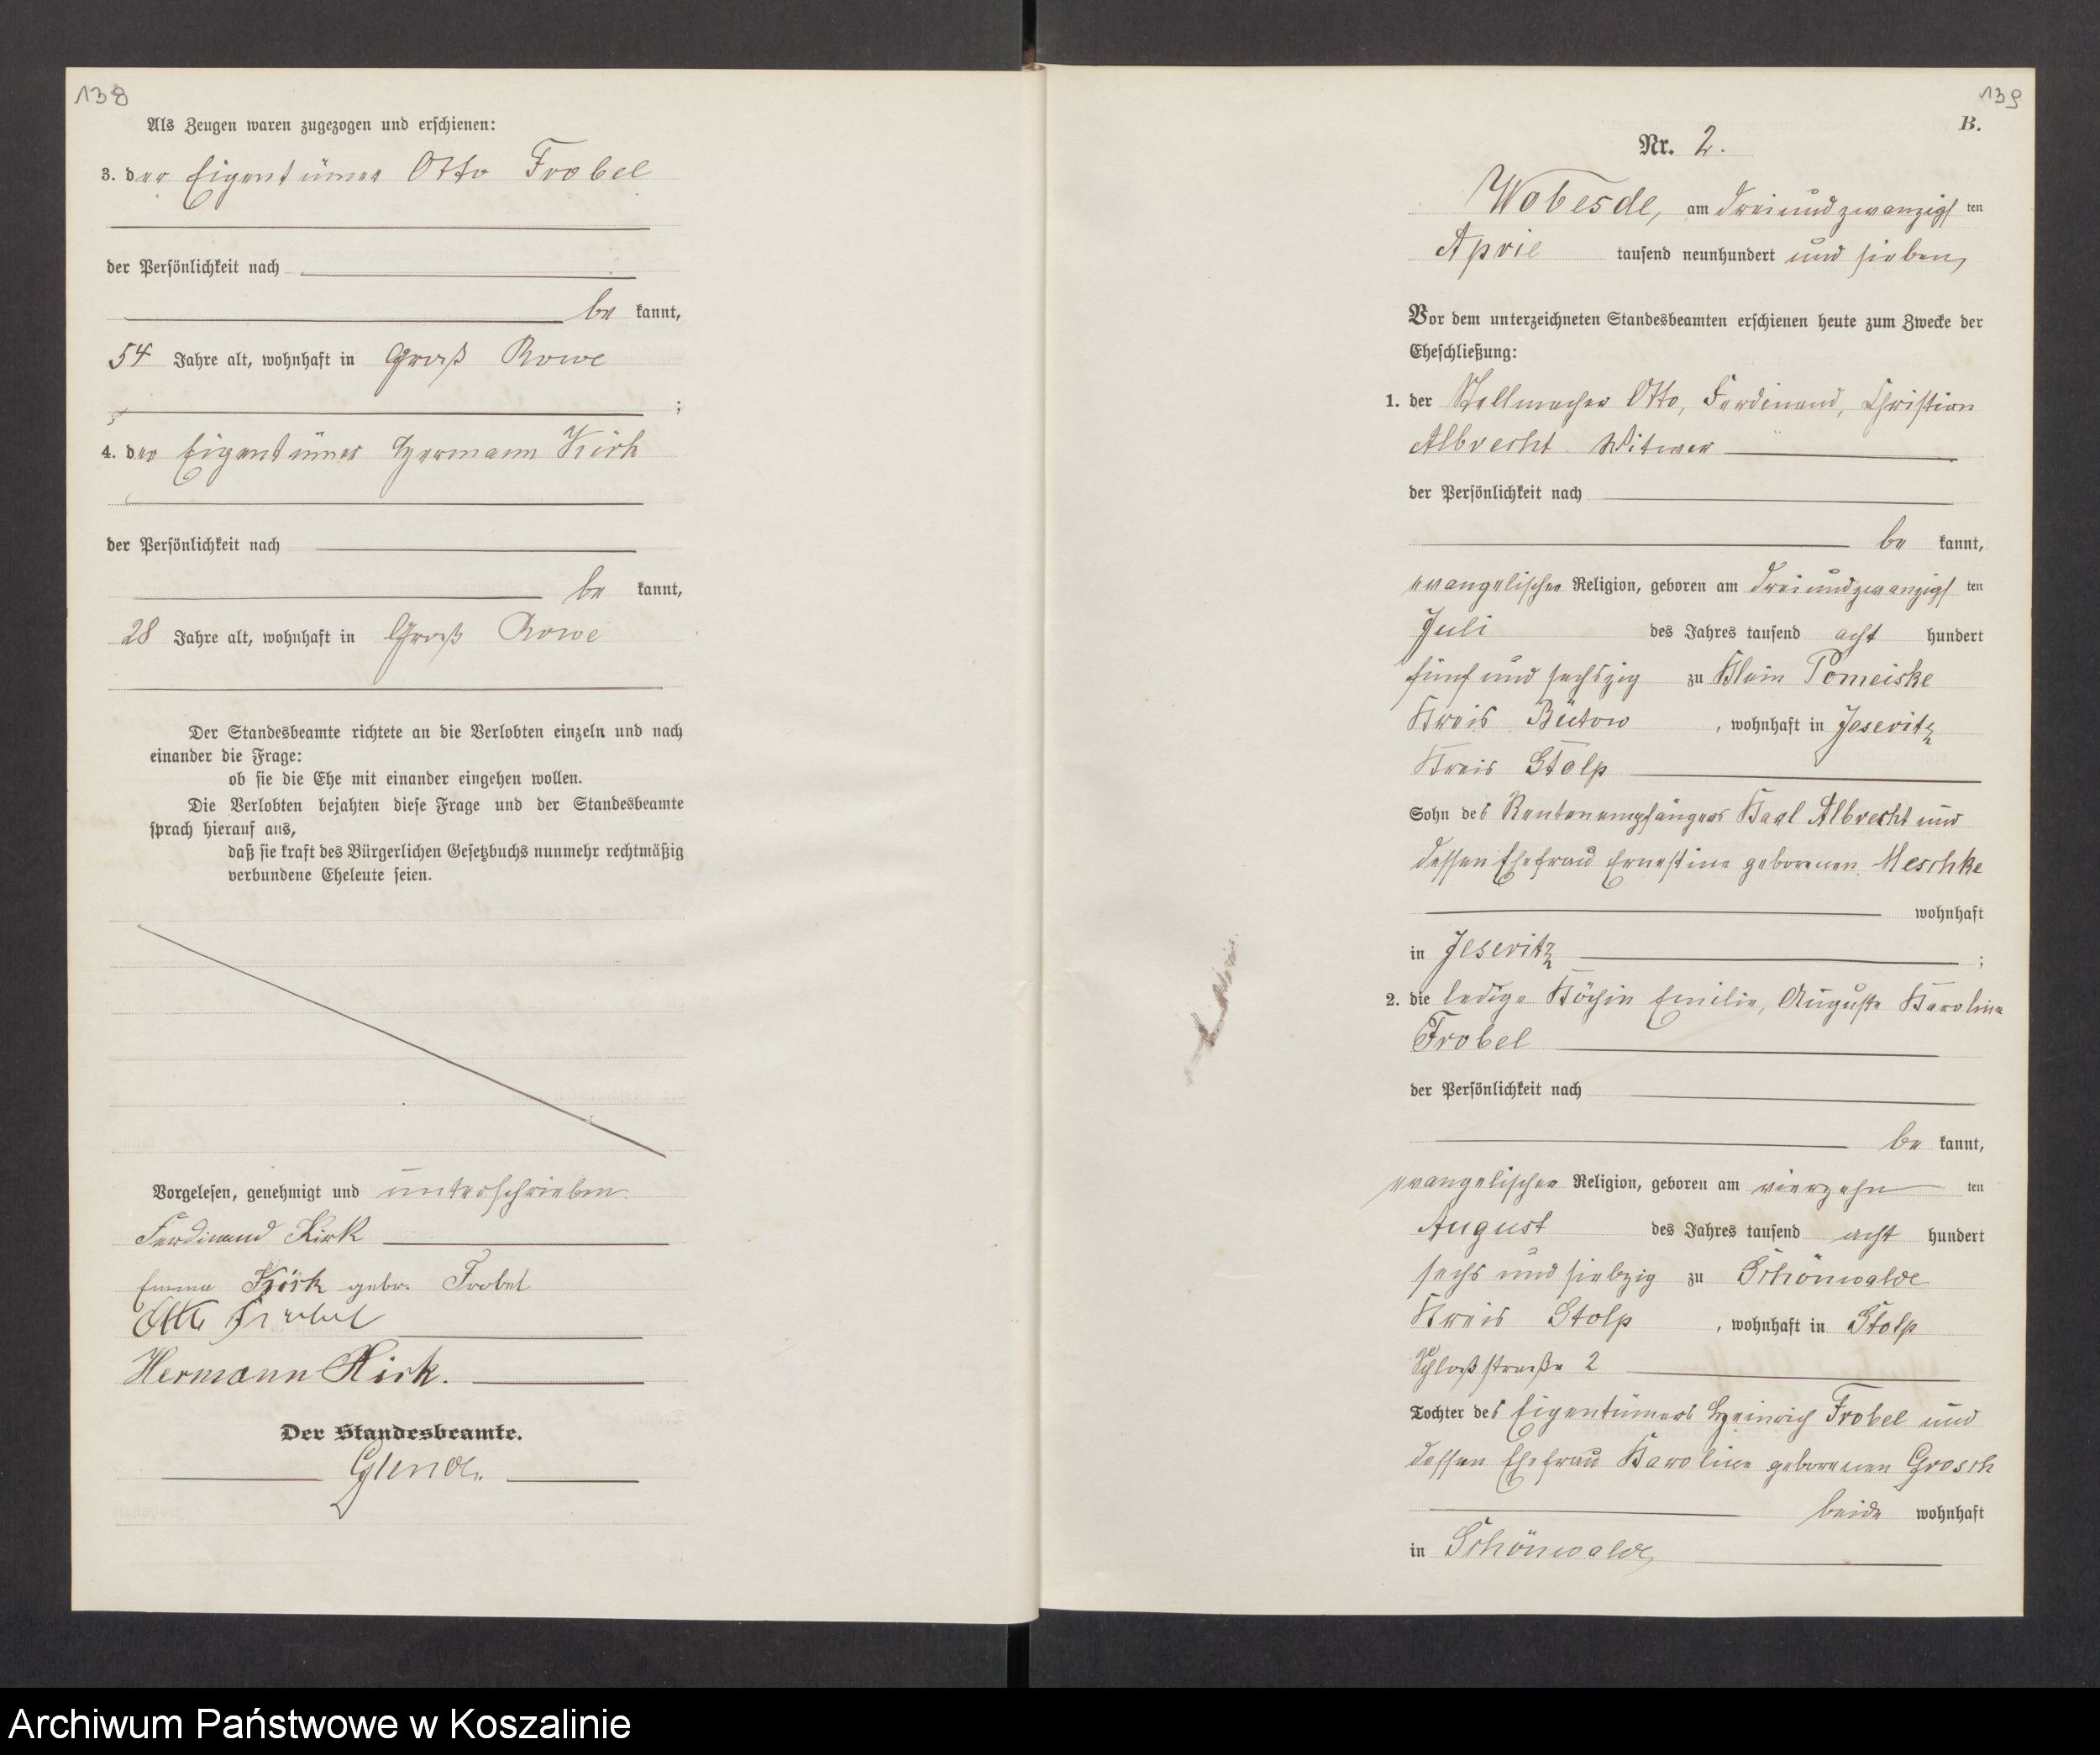 138
Als Zeugen waren zugezogen und erschienen:
3. der Eigentümer Otto Frobel
der Persönlichkeit nach
be kannt,
54 Jahre alt, wohnhaft in Groß Rowe
;
4. der Eigentümer Hermann Kirk
der Persönlichkeit nach
be kannt,
28 Jahre alt, wohnhaft in Groß Rowe
Der Standesbeamte richtete an die Verlobten einzeln und nach
einander die Frage:
ob sie die Ehe mit einander eingehen wollen.
Die Verlobten bejahten diese Frage und der Standesbeamte
sprach hierauf aus,
daß sie kraft des Bürgerlichen Gesetzbuchs nunmehr rechtmäßig
verbundene Eheleute seien.
Vorgelesen, genehmigt und unterschrieben
Ferdinand Kirk
Emma Kirk gebr. Frobel
Otto Frobel
Hermann Kirk.
Der Standesbeamte.
139
B.
Nr. 2.
Wobesde, am dreiundzwanzigs ten
April tausend neunhundert und sieben
Vor dem unterzeichneten Standesbeamten erschienen heute zum Zwecke der
Eheschließung:
1. der Stellmacher Otto, Ferdinand, Christian
Albrecht Witwer
der Persönlichkeit nach
be kannt,
evangelischer Religion, geboren am dreiundzwanzigs ten
Juli des Jahres tausend acht hundert
fünf und sechszig zu Klein Pomeiske
Kreis Bütow, wohnhaft in Jeseritz
Kreis Stolp
Sohn des Rentenempfängers Karl Albrecht und
dessen Ehefrau Ernestine geborenen Meschke
wohnhaft
in Jeseritz ;
2. die ledige Köchin Emilie, Auguste Karoline
Frobel
der Persönlichkeit nach
be kannt,
evangelischer Religion, geboren am vierzehn ten
August des Jahres tausend acht hundert
sechs und siebzig zu Schönwalde
Kreis Stolp, wohnhaft in Stolp
Schloßstraße 2
Tochter des Eigentümers Heinrich Frobel und
dessen Ehefrau Karoline geborenen Grosch
beide wohnhaft
in Schönwalde
Archiwum Państwowe w Koszalinie